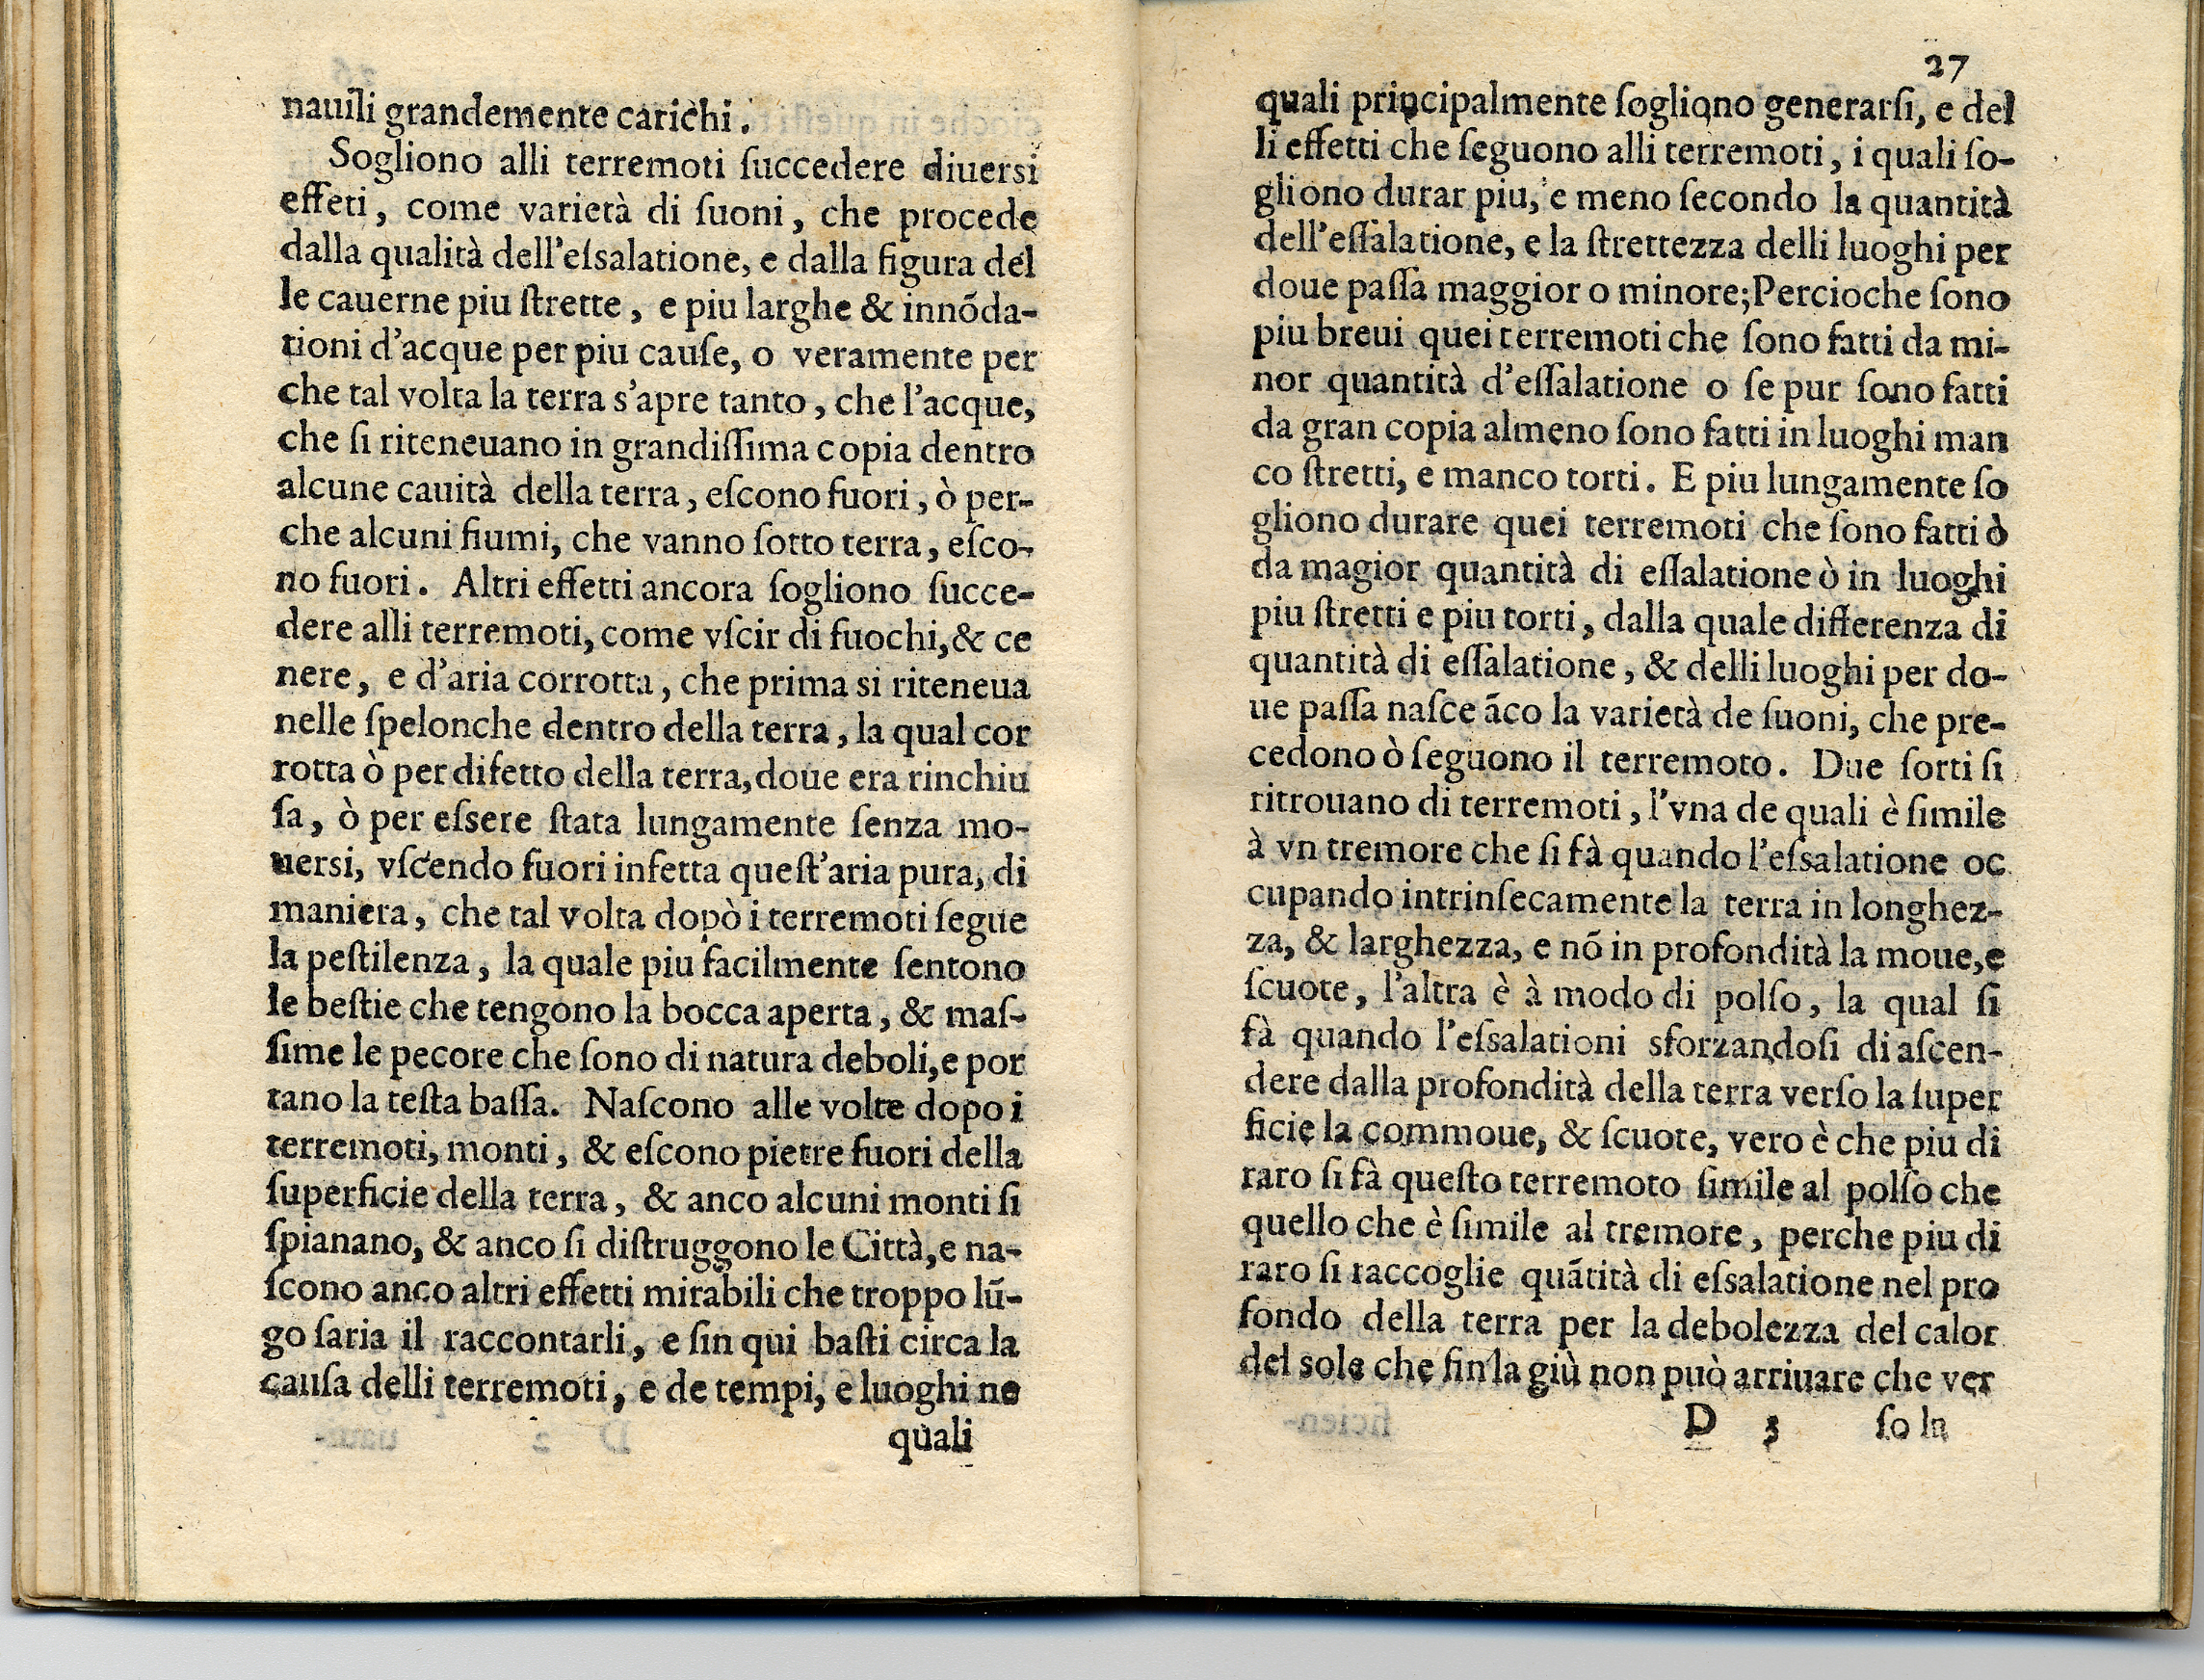 nauili grandemente carichi.
Sogliono alli terremoti ſuccedere diuersi
effeti, come varietà di ſuoni, che procede
dalla qualità dell'eſsalatione, e dalla figura del
le cauerne piu ſtrette, e piu larghe & innõda-
tioni d'acque per piu cauſe, o veramente per
che tal volta la terra s'apre tanto, che l'acque,
che ſi riteneuano in grandiſſima copia dentro
alcune cauità della terra, eſcono fuori, ò per-
che alcuni fiumi, che vanno ſotto terra, eſco-
no fuori. Altri effetti ancora ſogliono ſucce-
dere alli terremoti, come vſcir di fuochi, & ce
nere, e d'aria corrotta, che prima si riteneua
nelle ſpelonche dentro della terra, la qual cor
rotta ò per difetto della terra, doue era rinchiu
ſa, ò per eſsere ſtata lungamente ſenza mo-
uersi, vſcendo fuori infetta queſt'aria pura, di
maniera, che tal volta dopò i terremoti ſegue
la peſtilenza, la quale piu facilmente ſentono
le beſtie che tengono la bocca aperta, & maſ-
ſime le pecore che ſono di natura deboli, e por
tano la teſta baſſa. Naſcono alle volte dopo i
terremoti, monti, & eſcono pietre fuori della
ſuperficie della terra, & anco alcuni monti ſi
ſpianano, & anco ſi diſtruggono le Città, e na-
ſcono anco altri effetti mirabili che troppo lũ-
go ſaria il raccontarli, e ſin qui baſti circa la
cauſa delli terremoti, e de tempi, e luoghi ne
quali
27
quali principalmente ſogliono generarſi, e del
li effetti che ſeguono alli terremoti, i quali ſo-
gliono durar piu, e meno ſecondo la quantità
dell'eſſalatione, e la ſtrettezza delli luoghi per
doue paſſa maggior o minore; Percioche ſono
piu breui quei terremoti che ſono fatti da mi-
nor quantità d'eſſalatione o ſe pur ſono fatti
da gran copia almeno ſono fatti in luoghi man
co ſtretti, e manco torti. E piu lungamente ſo
gliono durare quei terremoti che ſono fatti ò
da magior quantità di eſſalatione ò in luoghi
piu ſtretti e piu torti, dalla quale differenza di
quantità di eſſalatione, & delli luoghi per do-
ue paſſa naſce ãco la varietà de ſuoni, che pre-
cedono ò ſeguono il terremoto. Due ſorti ſi
ritrouano di terremoti, l'vna de quali è ſimile
à vn tremore che ſi fà quando l'eſsalatione oc
cupando intrinſecamente la terra in longhez-
za, & larghezza, e nõ in profondità la moue, e
ſcuote, l'altra è à modo di polſo, la qual ſi
fà quando l'eſsalationi sforzandoſi di aſcen-
dere dalla profondità della terra verſo la ſuper
ficie la commoue, & ſcuote, vero è che piu di
raro ſi fà queſto terremoto ſimile al polſo che
quello che è ſimile al tremore, perche piu di
raro ſi raccoglie quãtità di eſsalatione nel pro
fondo della terra per la debolezza del calor
del sole che fin la giù non può arriuare che ver
D 3 ſo la